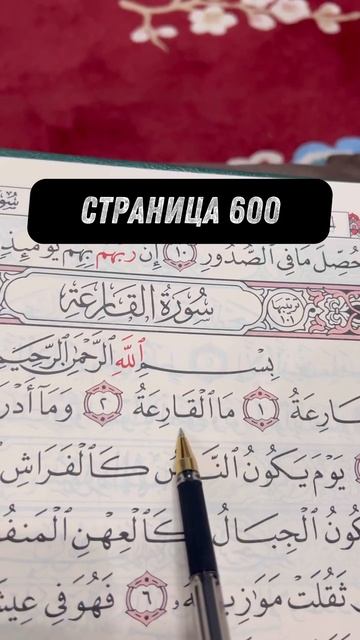 СТРАНИЦА 600
حُصِّلَ مَا فِى ٱلصُّدُورِ ١٠ إِنَّ رَبَّهُم بِهِمْ يَوْمَئِذٍ
سُورَةُ القَارِعَةِ
بِسْمِ ٱللَّهِ ٱلرَّحْمَٰنِ ٱلرَّحِيمِ
ارِعَةُ ١ مَا ٱلْقَارِعَةُ ٢ وَمَآ أَدْرَ
يَوْمَ يَكُونُ ٱلنَّاسُ كَٱلْفَرَاشِ
كُونُ ٱلْجِبَالُ كَٱلْعِهْنِ ٱلْمَنفُ
ثَقُلَتْ مَوَٰزِينُهُۥ ٦ فَهُوَ فِى عِيشَ